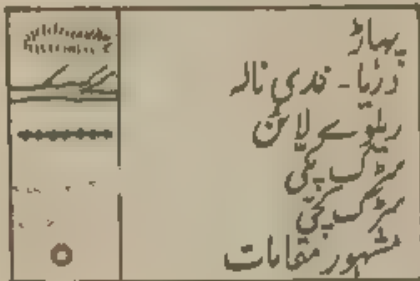 پہاڑ
دریا - ندی نالہ
ریلوے لائن
سڑک پکی
سڑک کچی
مشہور مقامات